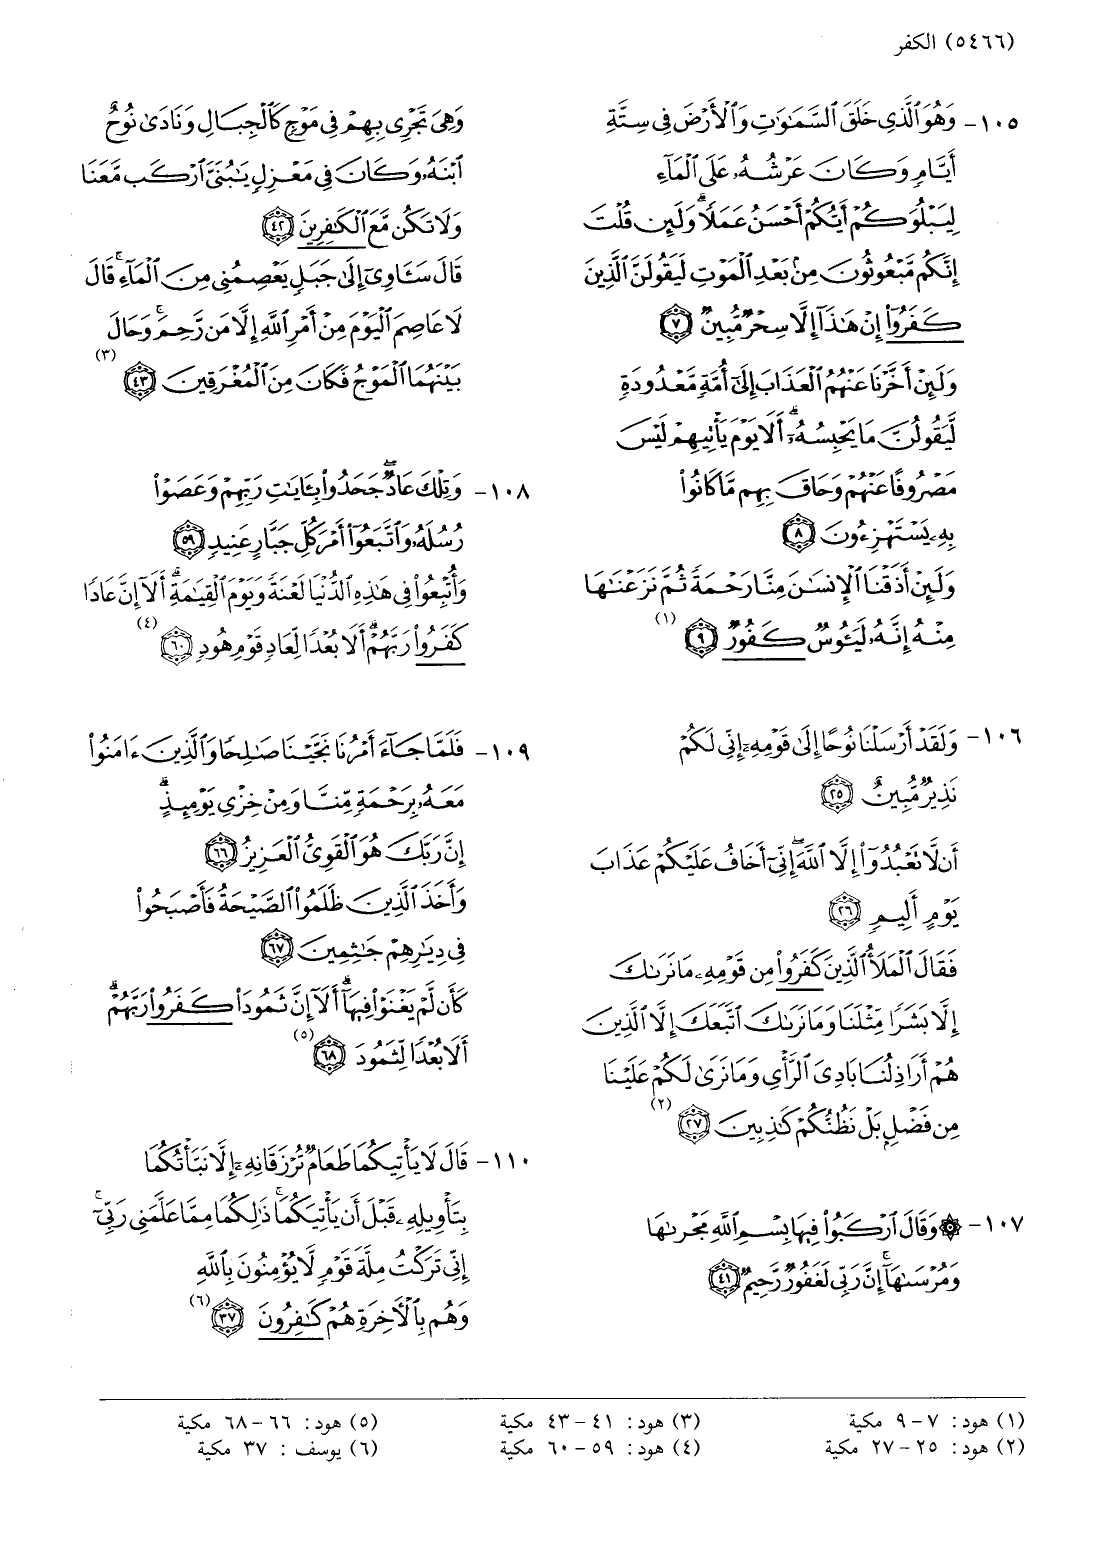 (٥٤٦٦) الكفر
١٠٥- وَهُوَ ٱلَّذِى خَلَقَ ٱلسَّمَٰوَٰتِ وَٱلْأَرْضَ فِى سِتَّةِ
أَيَّامٍ وَكَانَ عَرْشُهُۥ عَلَى ٱلْمَآءِ
لِيَبْلُوَكُمْ أَيُّكُمْ أَحْسَنُ عَمَلًا ۗ وَلَئِن قُلْتَ
إِنَّكُم مَّبْعُوثُونَ مِنۢ بَعْدِ ٱلْمَوْتِ لَيَقُولَنَّ ٱلَّذِينَ
كَفَرُوٓا۟ إِنْ هَٰذَآ إِلَّا سِحْرٌ مُّبِينٌ ٧
وَلَئِنْ أَخَّرْنَا عَنْهُمُ ٱلْعَذَابَ إِلَىٰٓ أُمَّةٍ مَّعْدُودَةٍ
لَّيَقُولُنَّ مَا يَحْبِسُهُۥٓ ۗ أَلَا يَوْمَ يَأْتِيهِمْ لَيْسَ
مَصْرُوفًا عَنْهُمْ وَحَاقَ بِهِم مَّا كَانُوا۟
بِهِۦ يَسْتَهْزِءُونَ ٨
وَلَئِنْ أَذَقْنَا ٱلْإِنسَٰنَ مِنَّا رَحْمَةً ثُمَّ نَزَعْنَٰهَا
مِنْهُ إِنَّهُۥ لَيَـُٔوسٌ كَفُورٌ ٩ (١)
١٠٦- وَلَقَدْ أَرْسَلْنَا نُوحًا إِلَىٰ قَوْمِهِۦٓ إِنِّى لَكُمْ
نَذِيرٌ مُّبِينٌ ٢٥
أَن لَّا تَعْبُدُوٓا۟ إِلَّا ٱللَّهَ ۖ إِنِّىٓ أَخَافُ عَلَيْكُمْ عَذَابَ
يَوْمٍ أَلِيمٍ ٢٦
فَقَالَ ٱلْمَلَأُ ٱلَّذِينَ كَفَرُوا۟ مِن قَوْمِهِۦ مَا نَرَىٰكَ
إِلَّا بَشَرًا مِّثْلَنَا وَمَا نَرَىٰكَ ٱتَّبَعَكَ إِلَّا ٱلَّذِينَ
هُمْ أَرَاذِلُنَا بَادِىَ ٱلرَّأْىِ وَمَا نَرَىٰ لَكُمْ عَلَيْنَا
مِن فَضْلٍۭ بَلْ نَظُنُّكُمْ كَٰذِبِينَ ٢٧ (٢)
١٠٧- ۞ وَقَالَ ٱرْكَبُوا۟ فِيهَا بِسْمِ ٱللَّهِ مَجْر۪ىٰهَا
وَمُرْسَىٰهَآ ۚ إِنَّ رَبِّى لَغَفُورٌ رَّحِيمٌ ٤١
وَهِىَ تَجْرِى بِهِمْ فِى مَوْجٍ كَٱلْجِبَالِ وَنَادَىٰ نُوحٌ
ٱبْنَهُۥ وَكَانَ فِى مَعْزِلٍ يَٰبُنَىَّ ٱرْكَب مَّعَنَا
وَلَا تَكُن مَّعَ ٱلْكَٰفِرِينَ ٤٢
قَالَ سَـَٔاوِىٓ إِلَىٰ جَبَلٍ يَعْصِمُنِى مِنَ ٱلْمَآءِ ۚ قَالَ
لَا عَاصِمَ ٱلْيَوْمَ مِنْ أَمْرِ ٱللَّهِ إِلَّا مَن رَّحِمَ ۚ وَحَالَ
بَيْنَهُمَا ٱلْمَوْجُ فَكَانَ مِنَ ٱلْمُغْرَقِينَ ٤٣ (٣)
١٠٨- وَتِلْكَ عَادٌ ۖ جَحَدُوا۟ بِـَٔايَٰتِ رَبِّهِمْ وَعَصَوْا۟
رُسُلَهُۥ وَٱتَّبَعُوٓا۟ أَمْرَ كُلِّ جَبَّارٍ عَنِيدٍ ٥٩
وَأُتْبِعُوا۟ فِى هَٰذِهِ ٱلدُّنْيَا لَعْنَةً وَيَوْمَ ٱلْقِيَٰمَةِ ۗ أَلَآ إِنَّ عَادًا
كَفَرُوا۟ رَبَّهُمْ ۗ أَلَا بُعْدًا لِّعَادٍ قَوْمِ هُودٍ ٦٠ (٤)
١٠٩- فَلَمَّا جَآءَ أَمْرُنَا نَجَّيْنَا صَٰلِحًا وَٱلَّذِينَ ءَامَنُوا۟
مَعَهُۥ بِرَحْمَةٍ مِّنَّا وَمِنْ خِزْىِ يَوْمِئِذٍ ۗ
إِنَّ رَبَّكَ هُوَ ٱلْقَوِىُّ ٱلْعَزِيزُ ٦٦
وَأَخَذَ ٱلَّذِينَ ظَلَمُوا۟ ٱلصَّيْحَةُ فَأَصْبَحُوا۟
فِى دِيَٰرِهِمْ جَٰثِمِينَ ٦٧
كَأَن لَّمْ يَغْنَوْا۟ فِيهَآ ۗ أَلَآ إِنَّ ثَمُودَا۟ كَفَرُوا۟ رَبَّهُمْ ۗ
أَلَا بُعْدًا لِّثَمُودَ ٦٨ (٥)
١١٠- قَالَ لَا يَأْتِيكُمَا طَعَامٌ تُرْزَقَانِهِۦٓ إِلَّا نَبَّأْتُكُمَا
بِتَأْوِيلِهِۦ قَبْلَ أَن يَأْتِيَكُمَا ۚ ذَٰلِكُمَا مِمَّا عَلَّمَنِى رَبِّىٓ ۚ
إِنِّى تَرَكْتُ مِلَّةَ قَوْمٍ لَّا يُؤْمِنُونَ بِٱللَّهِ
وَهُم بِٱلْءَاخِرَةِ هُمْ كَٰفِرُونَ ٣٧ (٦)
(١) هود: ٧-٩ مكية
(٢) هود: ٢٥-٢٧ مكية
(٣) هود: ٤١-٤٣ مكية
(٤) هود: ٥٩-٦٠ مكية
(٥) هود: ٦٦-٦٨ مكية
(٦) يوسف: ٣٧ مكية